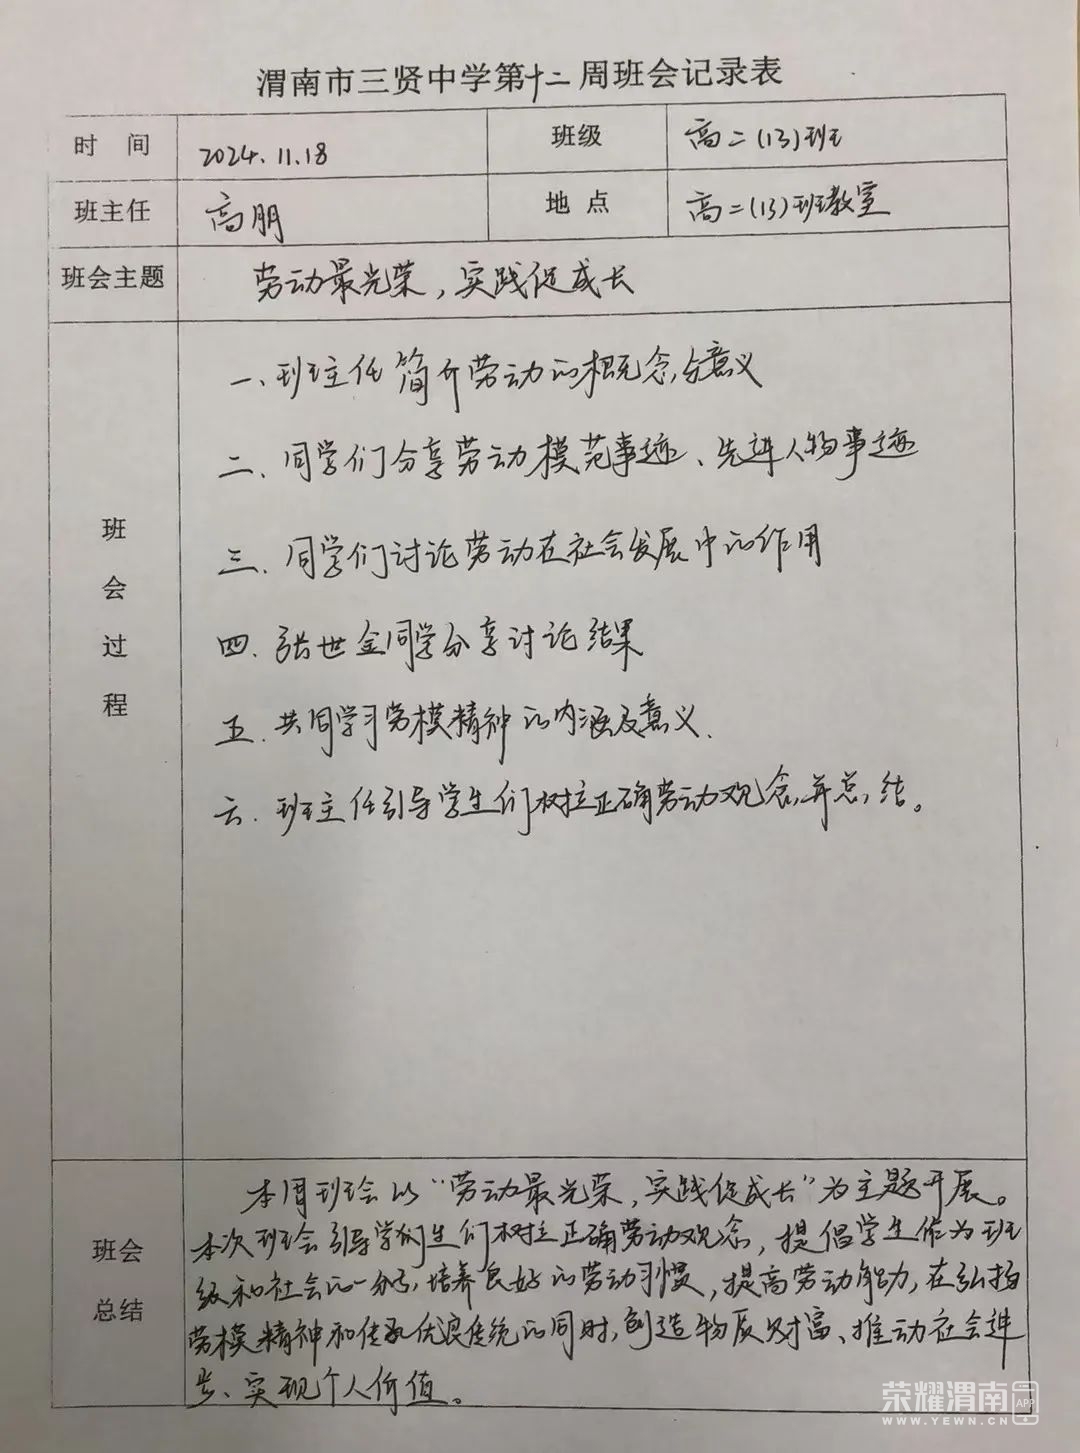 渭南市三贤中学第十二周班会记录表
时 间 2024.11.18 班级 高二(13)班
班主任 高朋 地 点 高二(13)班教室
班会主题 劳动最光荣，实践促成长
班会过程
一、班主任简介劳动的概念与意义
二、同学们分享劳动模范事迹、先进人物事迹
三、同学们讨论劳动在社会发展中的作用
四、张世金同学分享讨论结果
五、共同学习劳模精神的内涵及意义、
六、班主任引导学生们树立正确劳动观念，并总结。
班会总结
本周班会以“劳动最光荣，实践促成长”为主题开展。
本次班会引导学生们树立正确劳动观念，提倡学生作为班
级和社会的一分子，培养良好的劳动习惯，提高劳动能力，在弘扬
劳模精神和传承优良传统的同时，创造物质财富、推动社会进
步、实现个人价值。
荣耀渭南APP
WWW.YEWN.CN